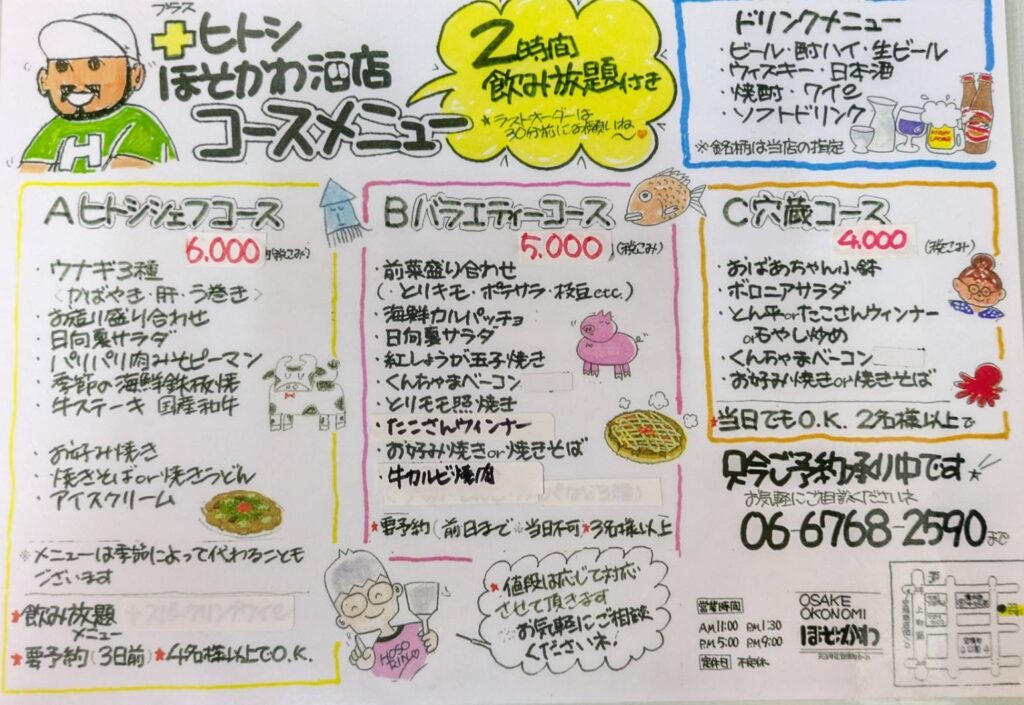 プラス
+ヒトシ
ほそかわ酒店
コースメニュー
H
2時間
飲み放題付き
★ラストオーダーは
30分前にお願いしね〜
ドリンクメニュー
・ビール・酎ハイ・生ビール
・ウィスキー・日本酒
・焼酎・ワイン
・ソフトドリンク
※銘柄は当店の指定
Aヒトシシェフコース
6.000(税こみ)
・ウナギ3種
〈かばやき・肝・う巻き〉
・お造り盛り合わせ
・日向夏サラダ
・パリパリ肉みそピーマン
・季節の海鮮鉄板焼
・牛ステーキ 国産和牛
・お好み焼き
・焼きそばor焼きうどん
・アイスクリーム
※メニューは季節によって代わることも
ございます
★飲み放題
メニュー
★要予約(3日前)★4名様以上でO.K.
Bバラエティーコース
5.000(税こみ)
・前菜盛り合わせ
(・とりキモ・ポテサラ・枝豆etc.)
・海鮮カルパッチョ
・日向夏サラダ
・紅しょうが玉子焼き
・くんちゃまベーコン
・とりモモ照焼き
・たこさんウィンナー
・お好み焼きor焼きそば
・牛カルビ焼肉
★要予約(前日まで※当日不可★3名様以上
HOSO
RINO
★値段は応じて対応
させて頂きます
お気軽にご相談
くださいネ!
C穴蔵コース
4.000(税こみ)
・おばあちゃん小鉢
・ボロニアサラダ
・とん平orたこさんウィンナー
orもやし炒め
・くんちゃまベーコン
・お好み焼きor焼きそば
★当日でもO.K. 2名様以上で
只今ご予約承り中です★
お気軽にご相談くださいネ
06-6768-2590まで
営業時間
AM11:00 P.M1:30
P.M5:00 P.M9:00
定休日 不定休
OSAKE
OKONOMI
ほそかわ